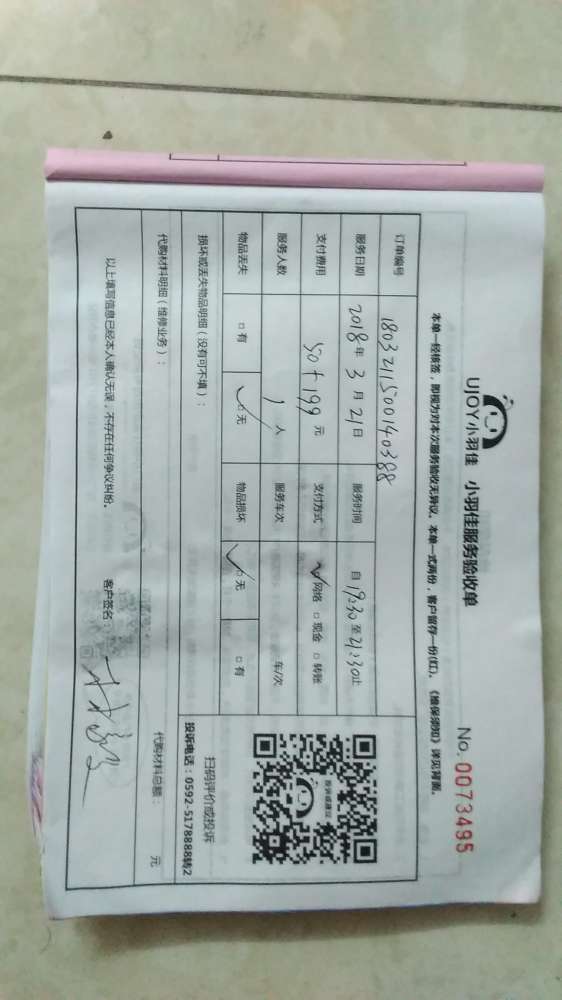 UJOY小羽佳 小羽佳服务验收单
No. 0073495
本单一经核签，即视为对本次服务验收无异议。本单一式两份，客户留存一份(红)。《维保须知》详见背面。
订单编号 1803211500140388
服务日期 2018年3月21日 服务时间 自19:30至21:30止
支付费用 50+199元 支付方式 ☑网络 □现金 □转账
服务人数 1人 服务车次 车/次
物品丢失 □有 ☑无 物品损坏 ☑无 □有
投诉或建议
扫码评价或投诉
投诉电话：0592-5178888转2
损坏或丢失物品明细（没有可不填）：
代购材料明细（维修业务）： 代购材料总额： 元
以上填写信息已经本人确认无误，不存在任何争议纠纷。 客户签名：